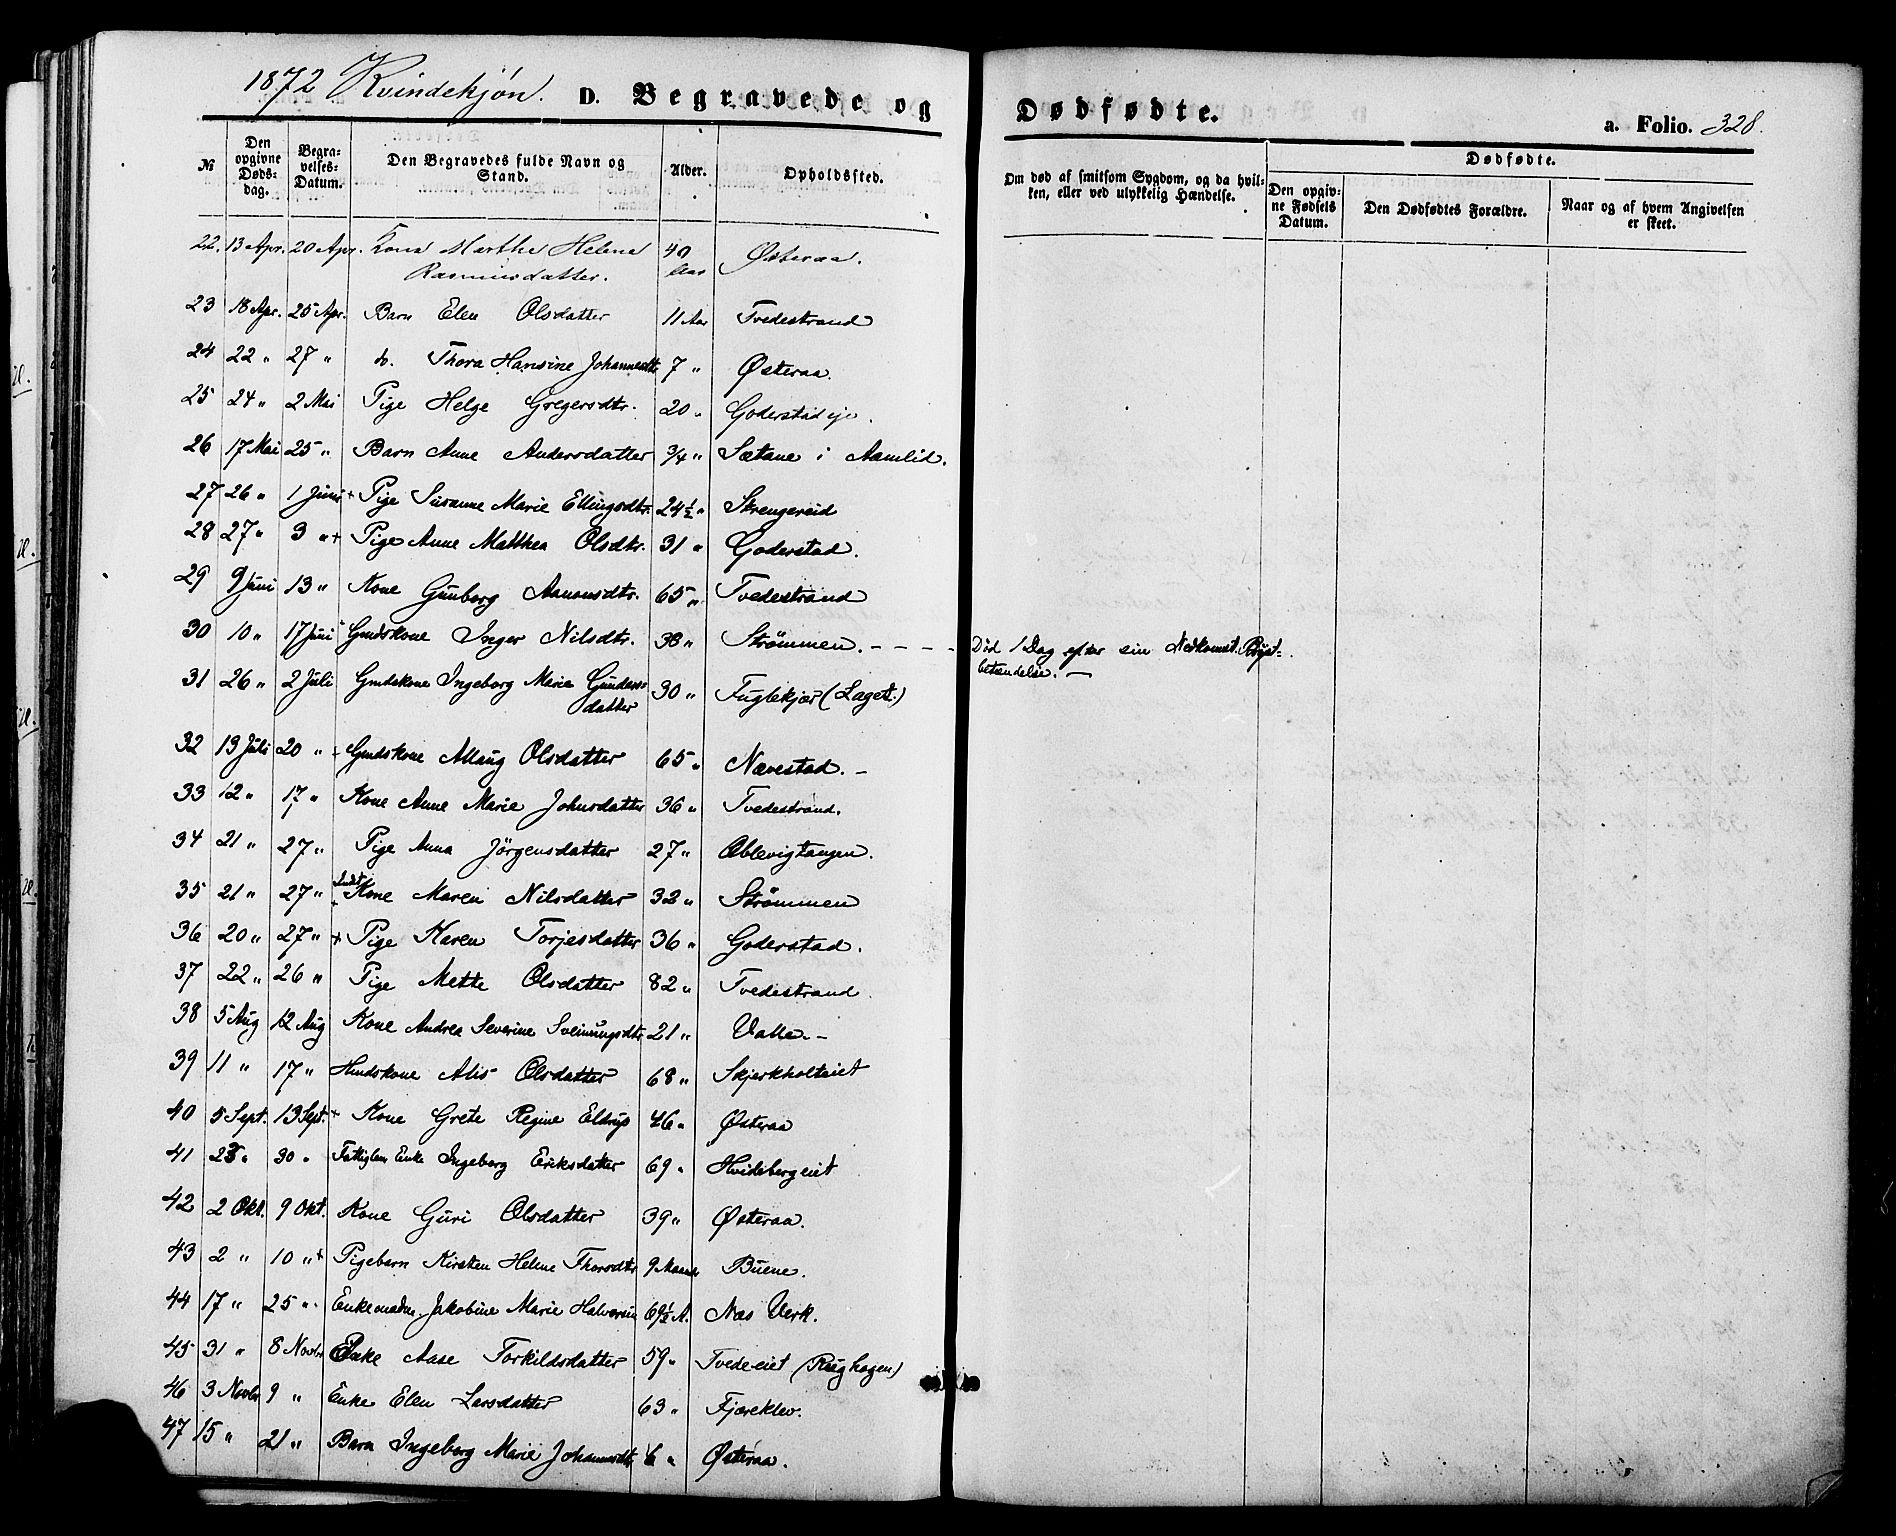 1872 Kvindekjøn. D. Begravede og Dødfødte. a. Folio. 328.
№ Den opgivne Døds-dag. Begra-velses-Datum. Den Begravedes fulde Navn og Stand. Alder. Opholdssted. Om død af smitsom Sygdom, og da hvil-ken, eller ved ulykkelig Hændelse. Dødfødte. Den opgiv-ne Fødsels Datum. Den Dødfødtes Forældre. Naar og af hvem Angivelsen er skeet.
22. 13 Apr. 20 Apr. Kona Marthe Helene 40 Aar Østeraa.
Rasmusdatter.
23 18 Apr. 25 Apr. Barn Elen Olsdatter 11 Aar Tvedestrand
24 22 " 27 " do. Thora Hansine Johannesdtr 7 " Østeraa.
25 24 " 2 Mai Pige Helge Gregersdtr. 20 " Goderstad eje.
26 17 Mai 25 " Barn Anne Andersdatter 3/4 " Sætane i Aamlid.
27 26 " 1 Juni + Pige Susanne Marie Ellingsdtr. 24½ " Strengereid
28 27 " 3 " + Pige Anne Mathea Olsdtr. 31 " Goderstad.
29 9 Juni 13 " Kone Gunborg Aanonsdtr. 65 " Tvedestrand
30 10 " 17 Juni Gmdskone Inger Nilsdtr. 38 " Strømmen. - - - - Død 1 Dag efter sin Nedkomst. Bryst-
betændelse. —
31 26 " 2 Juli Gmdskone Ingeborg Marie Gunders-
datter 30 " Fuglekjær (Laget.)
32 13 Juli 20 " Gmdskone Allaug Olsdatter 65 " Nævestad. -
33 12 " 17 " Kone Anne Marie Johnsdatter 36 " Tvedestrand.
34 21 " 27 " Pige Anna Jörgensdatter 27 " Oblevigtangen.
35 21 " 27 " + Kone Maren Nilsdatter 32 " Strømmen
36 20 " 27 " + Pige Karen Torjesdatter 36 " Goderstad.
37 22 " 26 " Pige Mette Olsdatter 82 " Tvedestrand
38 5 Aug 12 Aug Kone Andrea Severine Sveinungsdtr 21 " Valle. -
39 11 " 17 " Hmdskone Alis Olsdatter 68 " Skjerkholteiet
40 5 Sept. 13 Sept. + Kone Grete Regine Eldrup 46 " Østeraa
41 23 " 30 " Fattiglem Enke Ingeborg Eriksdatter 69 " Hvidebergeiet
42 2 Okt. 9 Okt. Kone Guri Olsdatter 39 " Østeraa.
43 2 " 10 " + Pigebarn Kirsten Helene Thorsdtr 9 Maand Buene.
44 17 " 25 " Enkemadm. Jakobine Marie Halvorsen 69½ A. Næs Verk.
45 31 " 8 Novbr Enke Aase Torkildsdatter 59 " Tvedeeiet (Rughagen)
46 3 Novbr 9 " Enke Elen Larsdatter 63 " Fjæreklev.
47 15 " 21 " Barn Ingeborg Marie Johannesdtr 6 " Østeraa.